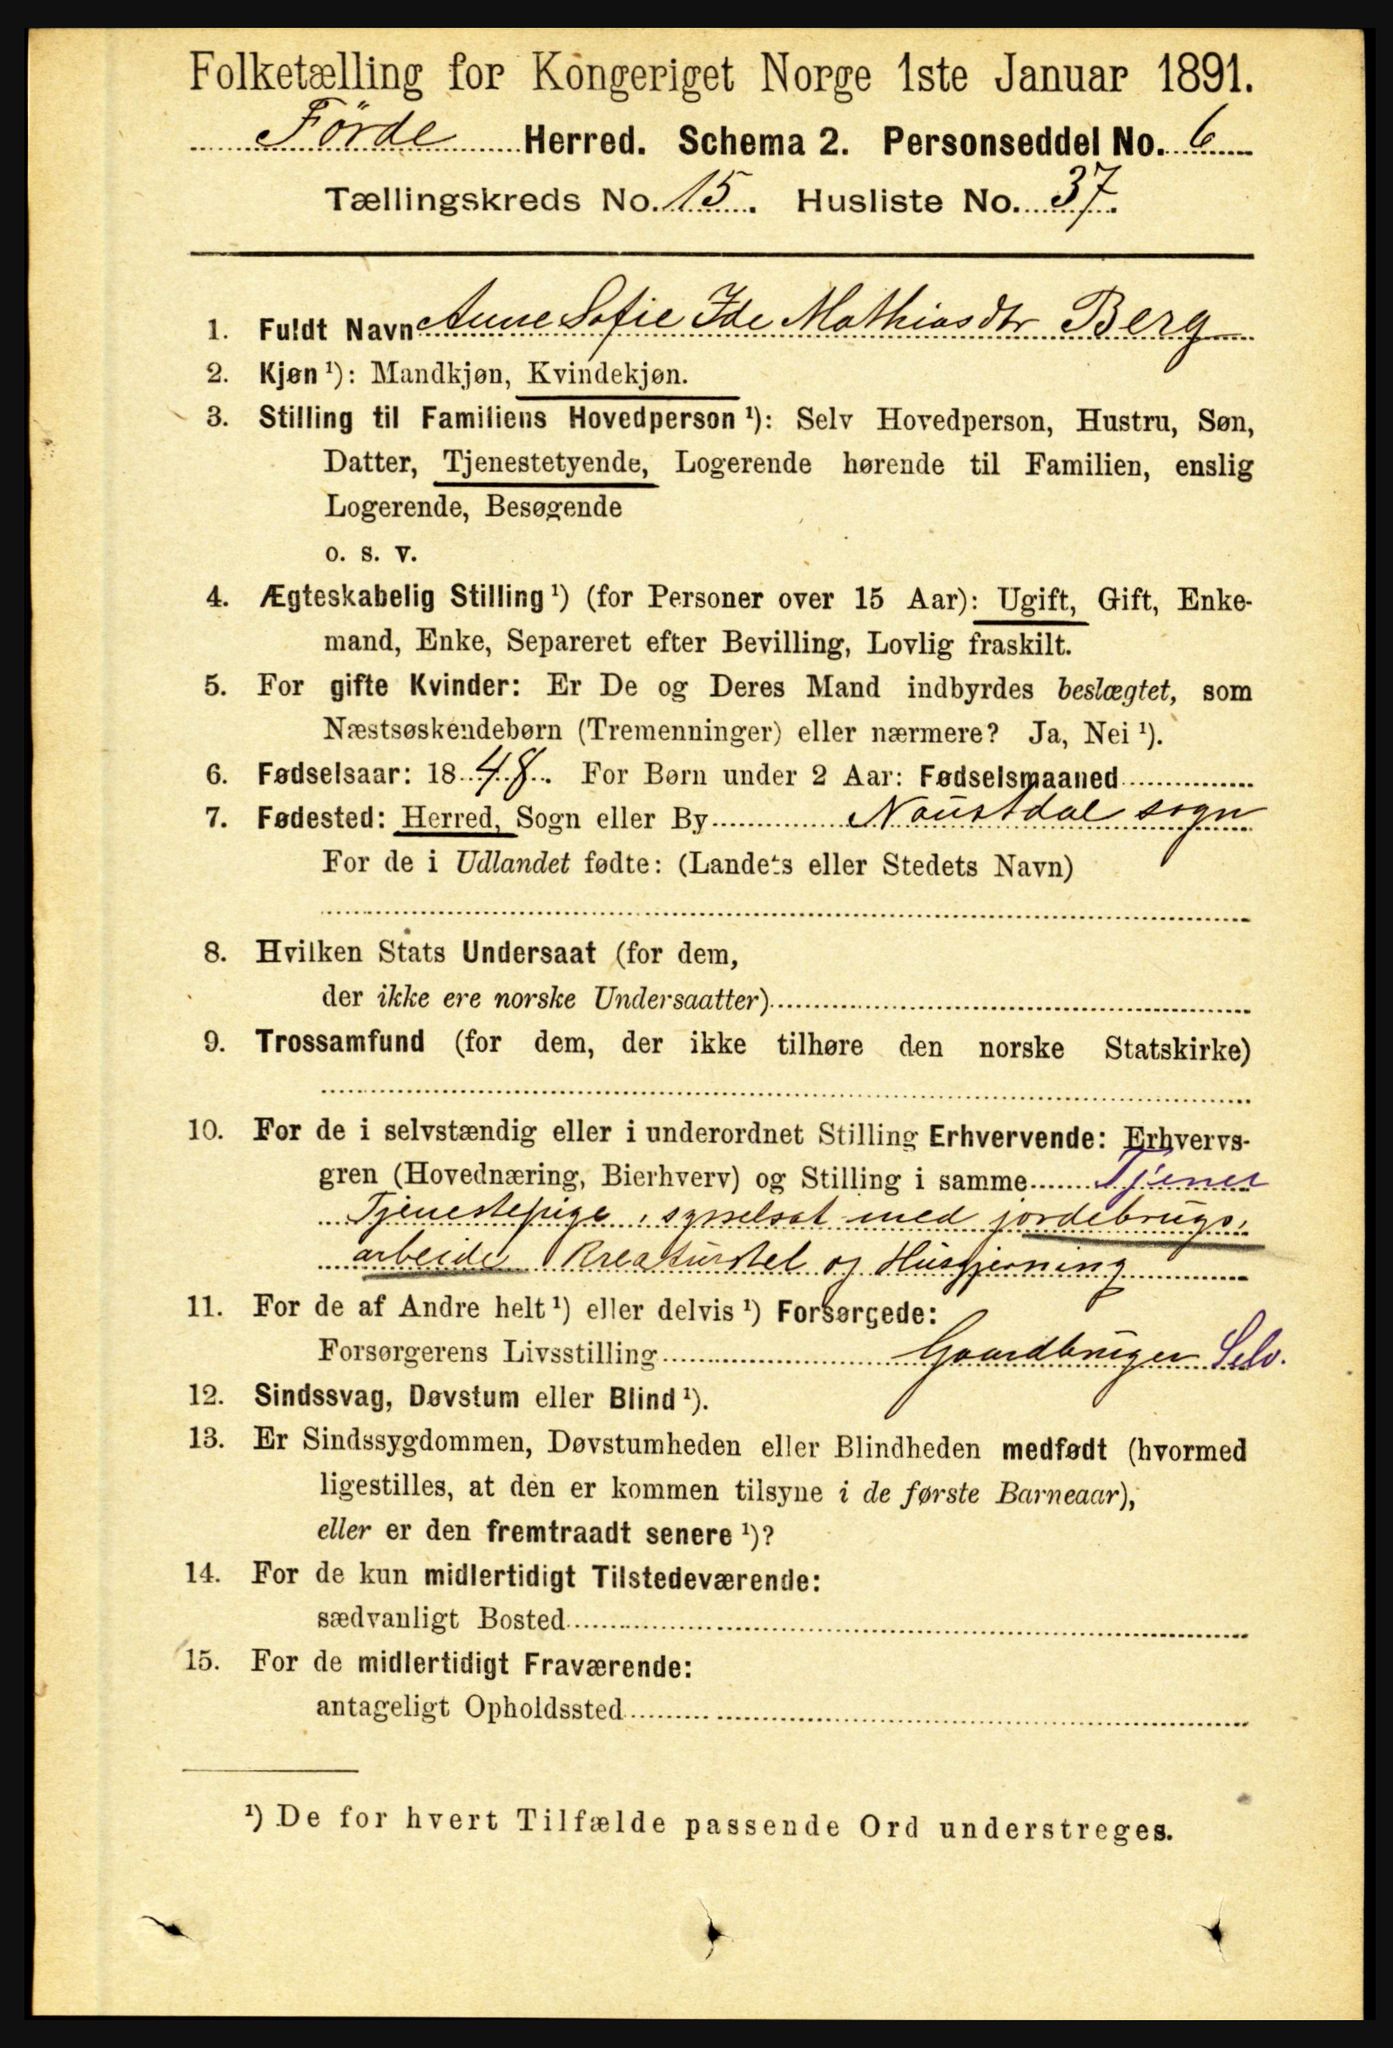 Folketælling for Kongeriget Norge 1ste Januar 1891.
Förde Herred. Schema 2. Personseddel No. 6
Tællingskreds No. 15. Husliste No. 37.
1. Fuldt Navn Anne Sofie Ide Mathiasdtr Berg
2. Kjøn ¹): Mandkjøn, Kvindekjøn.
3. Stilling til Familiens Hovedperson ¹): Selv Hovedperson, Hustru, Søn,
Datter, Tjenestetyende, Logerende hørende til Familien, enslig
Logerende, Besøgende
o. s. v.
4. Ægteskabelig Stilling ¹) (for Personer over 15 Aar): Ugift, Gift, Enke-
mand, Enke, Separeret efter Bevilling, Lovlig fraskilt.
5. For gifte Kvinder: Er De og Deres Mand indbyrdes beslægtet, som
Næstsøskendebørn (Tremenninger) eller nærmere? Ja, Nei ¹).
6. Fødselsaar: 1848. For Børn under 2 Aar: Fødselsmaaned
7. Fødested: Herred, Sogn eller By Naustdal sogn
For de i Udlandet fødte: (Landets eller Stedets Navn)
8. Hvilken Stats Undersaat (for dem,
der ikke ere norske Undersaatter)
9. Trossamfund (for dem, der ikke tilhøre den norske Statskirke)
10. For de i selvstændig eller i underordnet Stilling Erhvervende: Erhvervs-
gren (Hovednæring, Bierhverv) og Stilling i samme Tjener
Tjenestepige, sysselsat med jordebrugs,
arbeide Kreaturstel og Husgjerning
11. For de af Andre helt ¹) eller delvis ¹) Forsørgede:
Forsørgerens Livsstilling Gaardbruger Selv.
12. Sindssvag, Døvstum eller Blind ¹).
13. Er Sindssygdommen, Døvstumheden eller Blindheden medfødt (hvormed
ligestilles, at den er kommen tilsyne i de første Barneaar),
eller er den fremtraadt senere ¹)?
14. For de kun midlertidigt Tilstedeværende:
sædvanligt Bosted
15. For de midlertidigt Fraværende:
antageligt Opholdssted
¹) De for hvert Tilfælde passende Ord understreges.